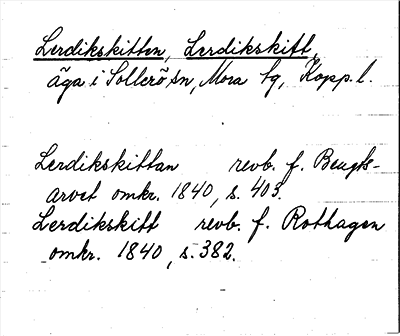 Lerdikskitten, Lerdikskift,
äga i Sollerö sn, Mora tg, Kopp. l.
Lerdikskittan revb. f. Bengts-
arvet omkr. 1840, s. 403.
Lerdikskitt revb. f. Rothagen
omkr. 1840, s. 382.